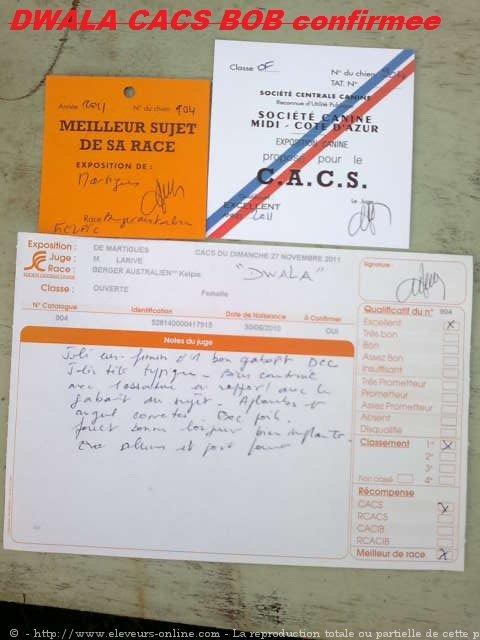 DWALA CACS BOB confirmee
Année 2011 N° du chien 904
MEILLEUR SUJET
DE SA RACE
EXPOSITION DE :
Martigues
Race Berger australien
Kelpie
Classe OF N° du chien
TAT. N°
SOCIÉTÉ CENTRALE CANINE
Reconnue d'Utilité Publique
SOCIÉTÉ CANINE
MIDI - COTE D'AZUR
EXPOSITION CANINE
propose pour le
C.A.C.S.
EXCELLENT
2011
Exposition : DE MARTIGUES CACS DU DIMANCHE 27 NOVEMBRE 2011
Juge : M. LARIVE
Race : BERGER AUSTRALIEN Kelpie "DWALA"
SOCIÉTÉ CENTRALE CANINE
Classe : OUVERTE Femelle
N° Catalogue Identification Date de Naissance à Confirmer
904 528140000417915 30/06/2010 OUI
Notes du juge
Joli
Jolie tête typique. Bien construite
avec l'ossature en rapport avec le
gabarit du sujet. Aplombs et
angul correctes Bec poil.
fouet bonne longueur bien implanté.
Signature :
Qualificatif du n° 904
Excellent X
Très bon
Bon
Assez Bon
Insuffisant
Très Prometteur
Prometteur
Assez Prometteur
Absent
Disqualifié
Classement 1er X
2e
3e
Non classé 4e
Récompense
CACS X
RCACS
CACIB
RCACIB
Meilleur de race X
© - http://www.eleveurs-online.com - La reproduction totale ou partielle de cette p